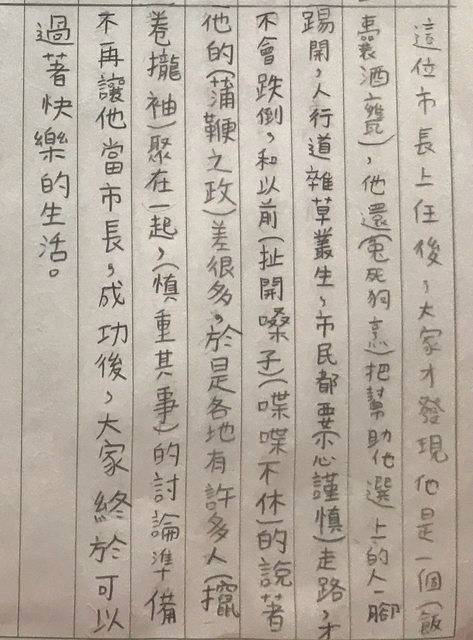 這位市長上任後，大家才發現他是一個(飯
囊酒甕)，他還(兔死狗烹)把幫助他選上的人一腳
踢開，人行道雜草叢生，市民都要(小心謹慎)走路，才
不會跌倒，和以前(扯開嗓子)(喋喋不休)的說著
他的(蒲鞭之政)差很多。於是各地有許多人(攛
卷攏袖)聚在一起，(慎重其事)的討論準備
不再讓他當市長，成功後，大家終於可以
過著快樂的生活。